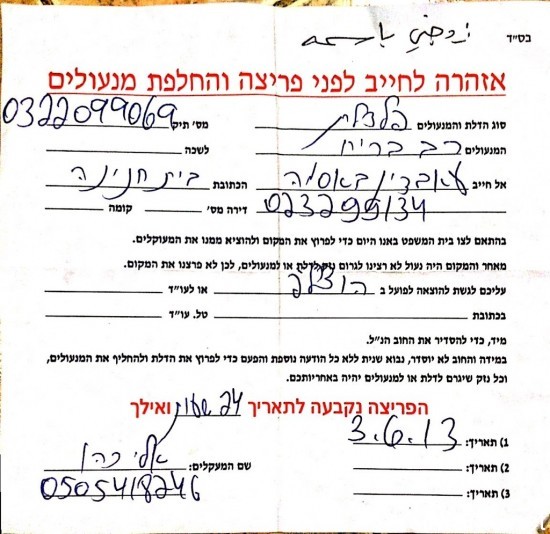 בס"ד
אזהרה לחייב לפני פריצה והחלפת מנעולים
סוג הדלת והמנעולים פלדלת מס' תיק 0322099069
המנעולים רב בריח לשכה
אל חייב עאבדין באסמה הכתובת בית חנינה
023299134 דירה מס' קומה
בהתאם לצו בית המשפט באנו היום כדי לפרוץ את המקום ולהוציא ממנו את המעוקלים.
מאחר והמקום היה נעול לא רצינו לגרום נזק לדלת או למנעולים, לכן לא פרצנו את המקום.
עליכם לגשת להוצאה לפועל ב או לעו"ד
בכתובת טל. עו"ד
מיד, כדי להסדיר את החוב הנ"ל.
במידה והחוב לא יוסדר, נבוא שנית ללא כל הודעה נוספת והפעם כדי לפרוץ את הדלת ולהחליף את המנעולים,
וכל נזק שיגרם לדלת או למנעולים יהיה באחריותכם.
הפריצה נקבעה לתאריך 24 שעות ואילך
1) תאריך: 3.6.13
שם המעקלים: אלי כהן
2) תאריך:
0505418246
3) תאריך: